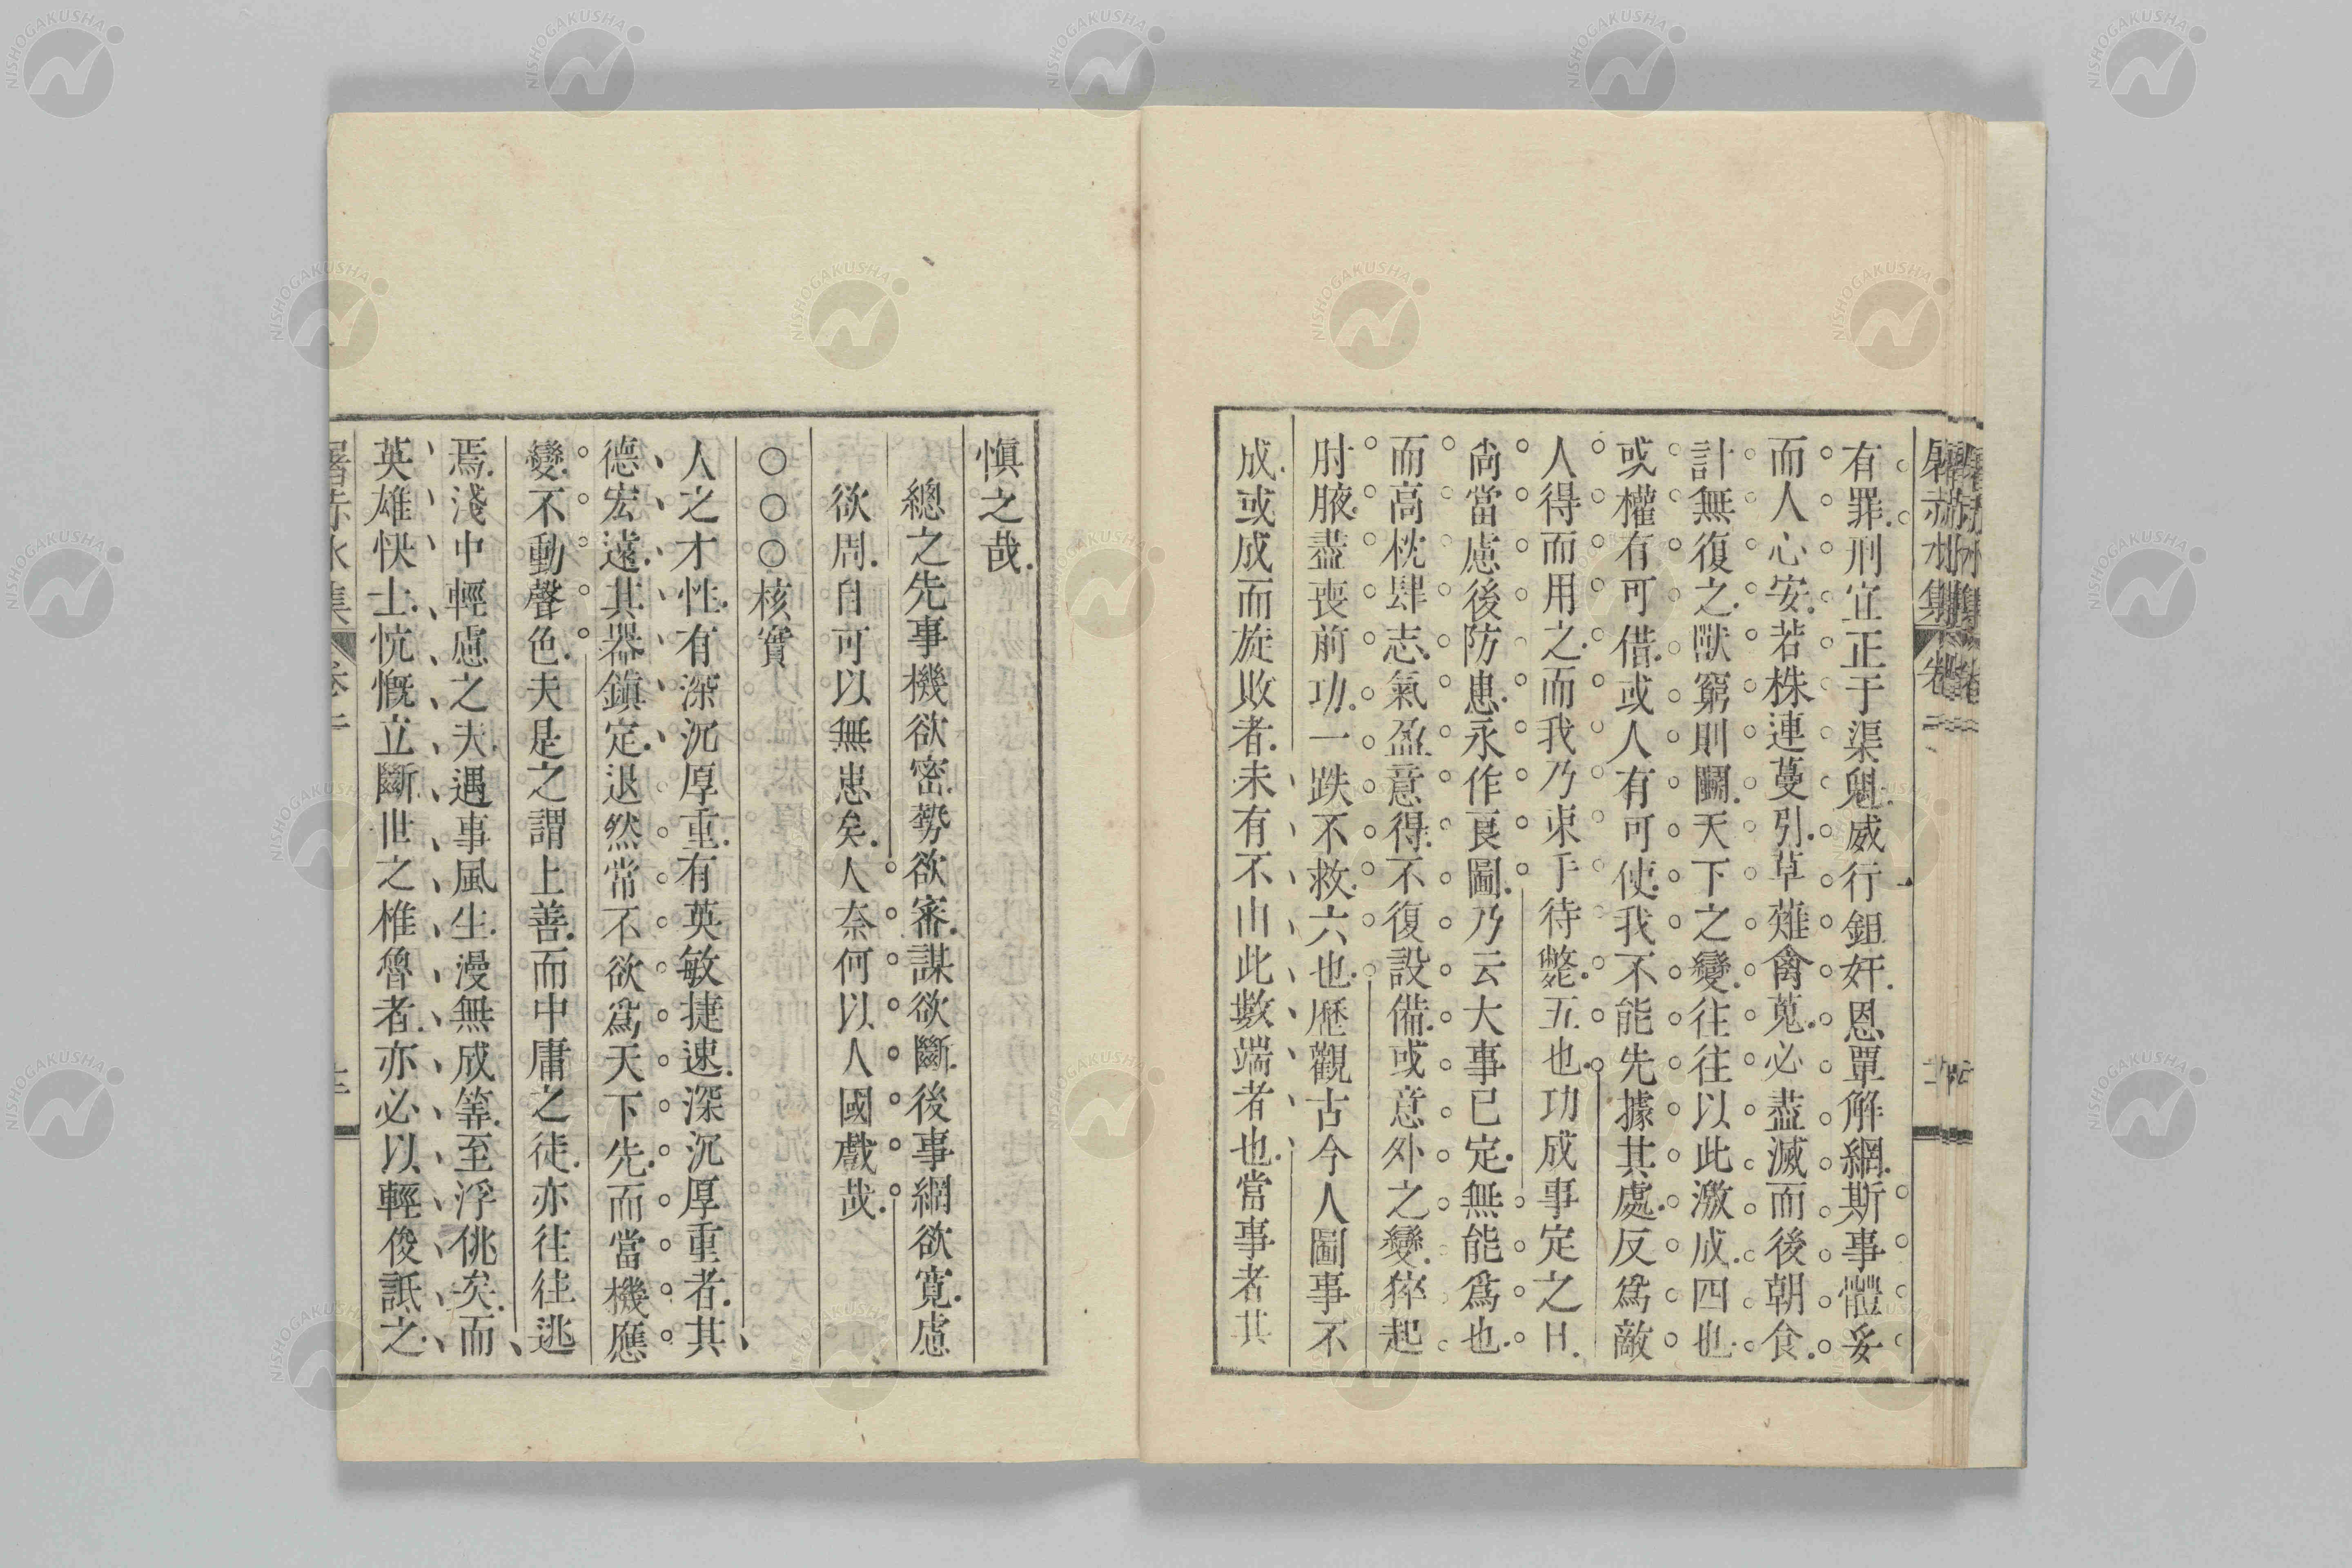 有罪刑宜正于渠魁威行鉏奸恩覃解網斯事體妥
而人心安若株連蔓引草薙禽蒐必盡滅而後朝食
計無復之獸窮則鬬天下之變往往以此激成四也
或權有可借或人有可使我不能先據其處反爲敵
人得而用之而我乃束手待斃五也功成事定之日
尚當慮後防患永作良圖乃云大事已定無能爲也
而高枕肆志氣盈意得不復設備或意外之變猝起
肘腋盡喪前功一跌不救六也歷觀古今人圖事不
成或成而旋敗者未有不由此數端者也當事者其
慎之哉
總之先事機欲密勢欲審謀欲斷後事網欲寬慮
欲周自可以無患矣人奈何以人國戲哉
○○○核實
人之才性有深沉厚重有英敏捷速深沉厚重者其
德宏遠其器鎮定退然常不欲爲天下先而當機應
變不動聲色夫是之謂上善而中庸之徒亦往往逃
焉淺中輕慮之夫遇事風生漫無成筭至浮佻矣而
英雄快士忼慨立斷世之椎魯者亦必以輕俊詆之
屠赤水集 卷二
NISHOGAKUSHA